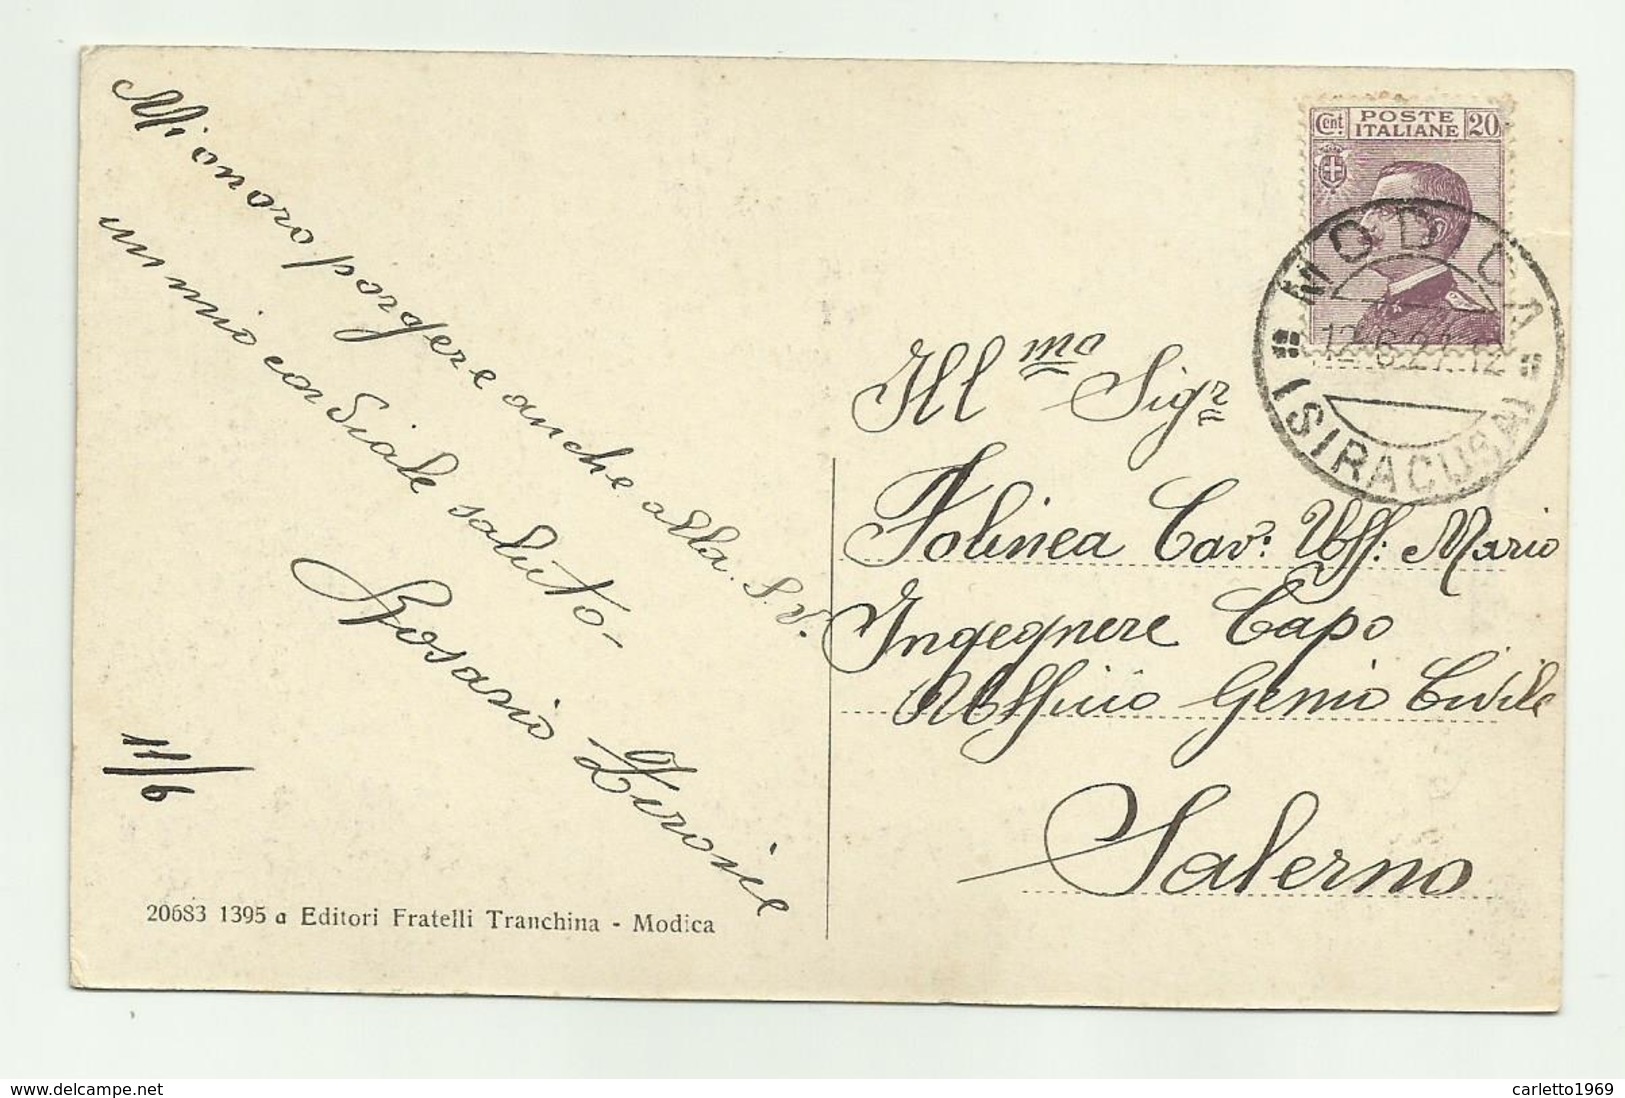 Mi onoro porgere anche alla S. V.
un mio cordiale saluto -
Rosario Zirone
11/6
20683 1395 a Editori Fratelli Tranchina - Modica
Cent POSTE ITALIANE 20
MODICA
12.6.21.12
(SIRACUSA)
Ill mo Sigr
Folinea Cav. Uff. Mario
Ingegnere Capo
Ufficio Genio Civile
Salerno
www.delcampe.net
carletto1969